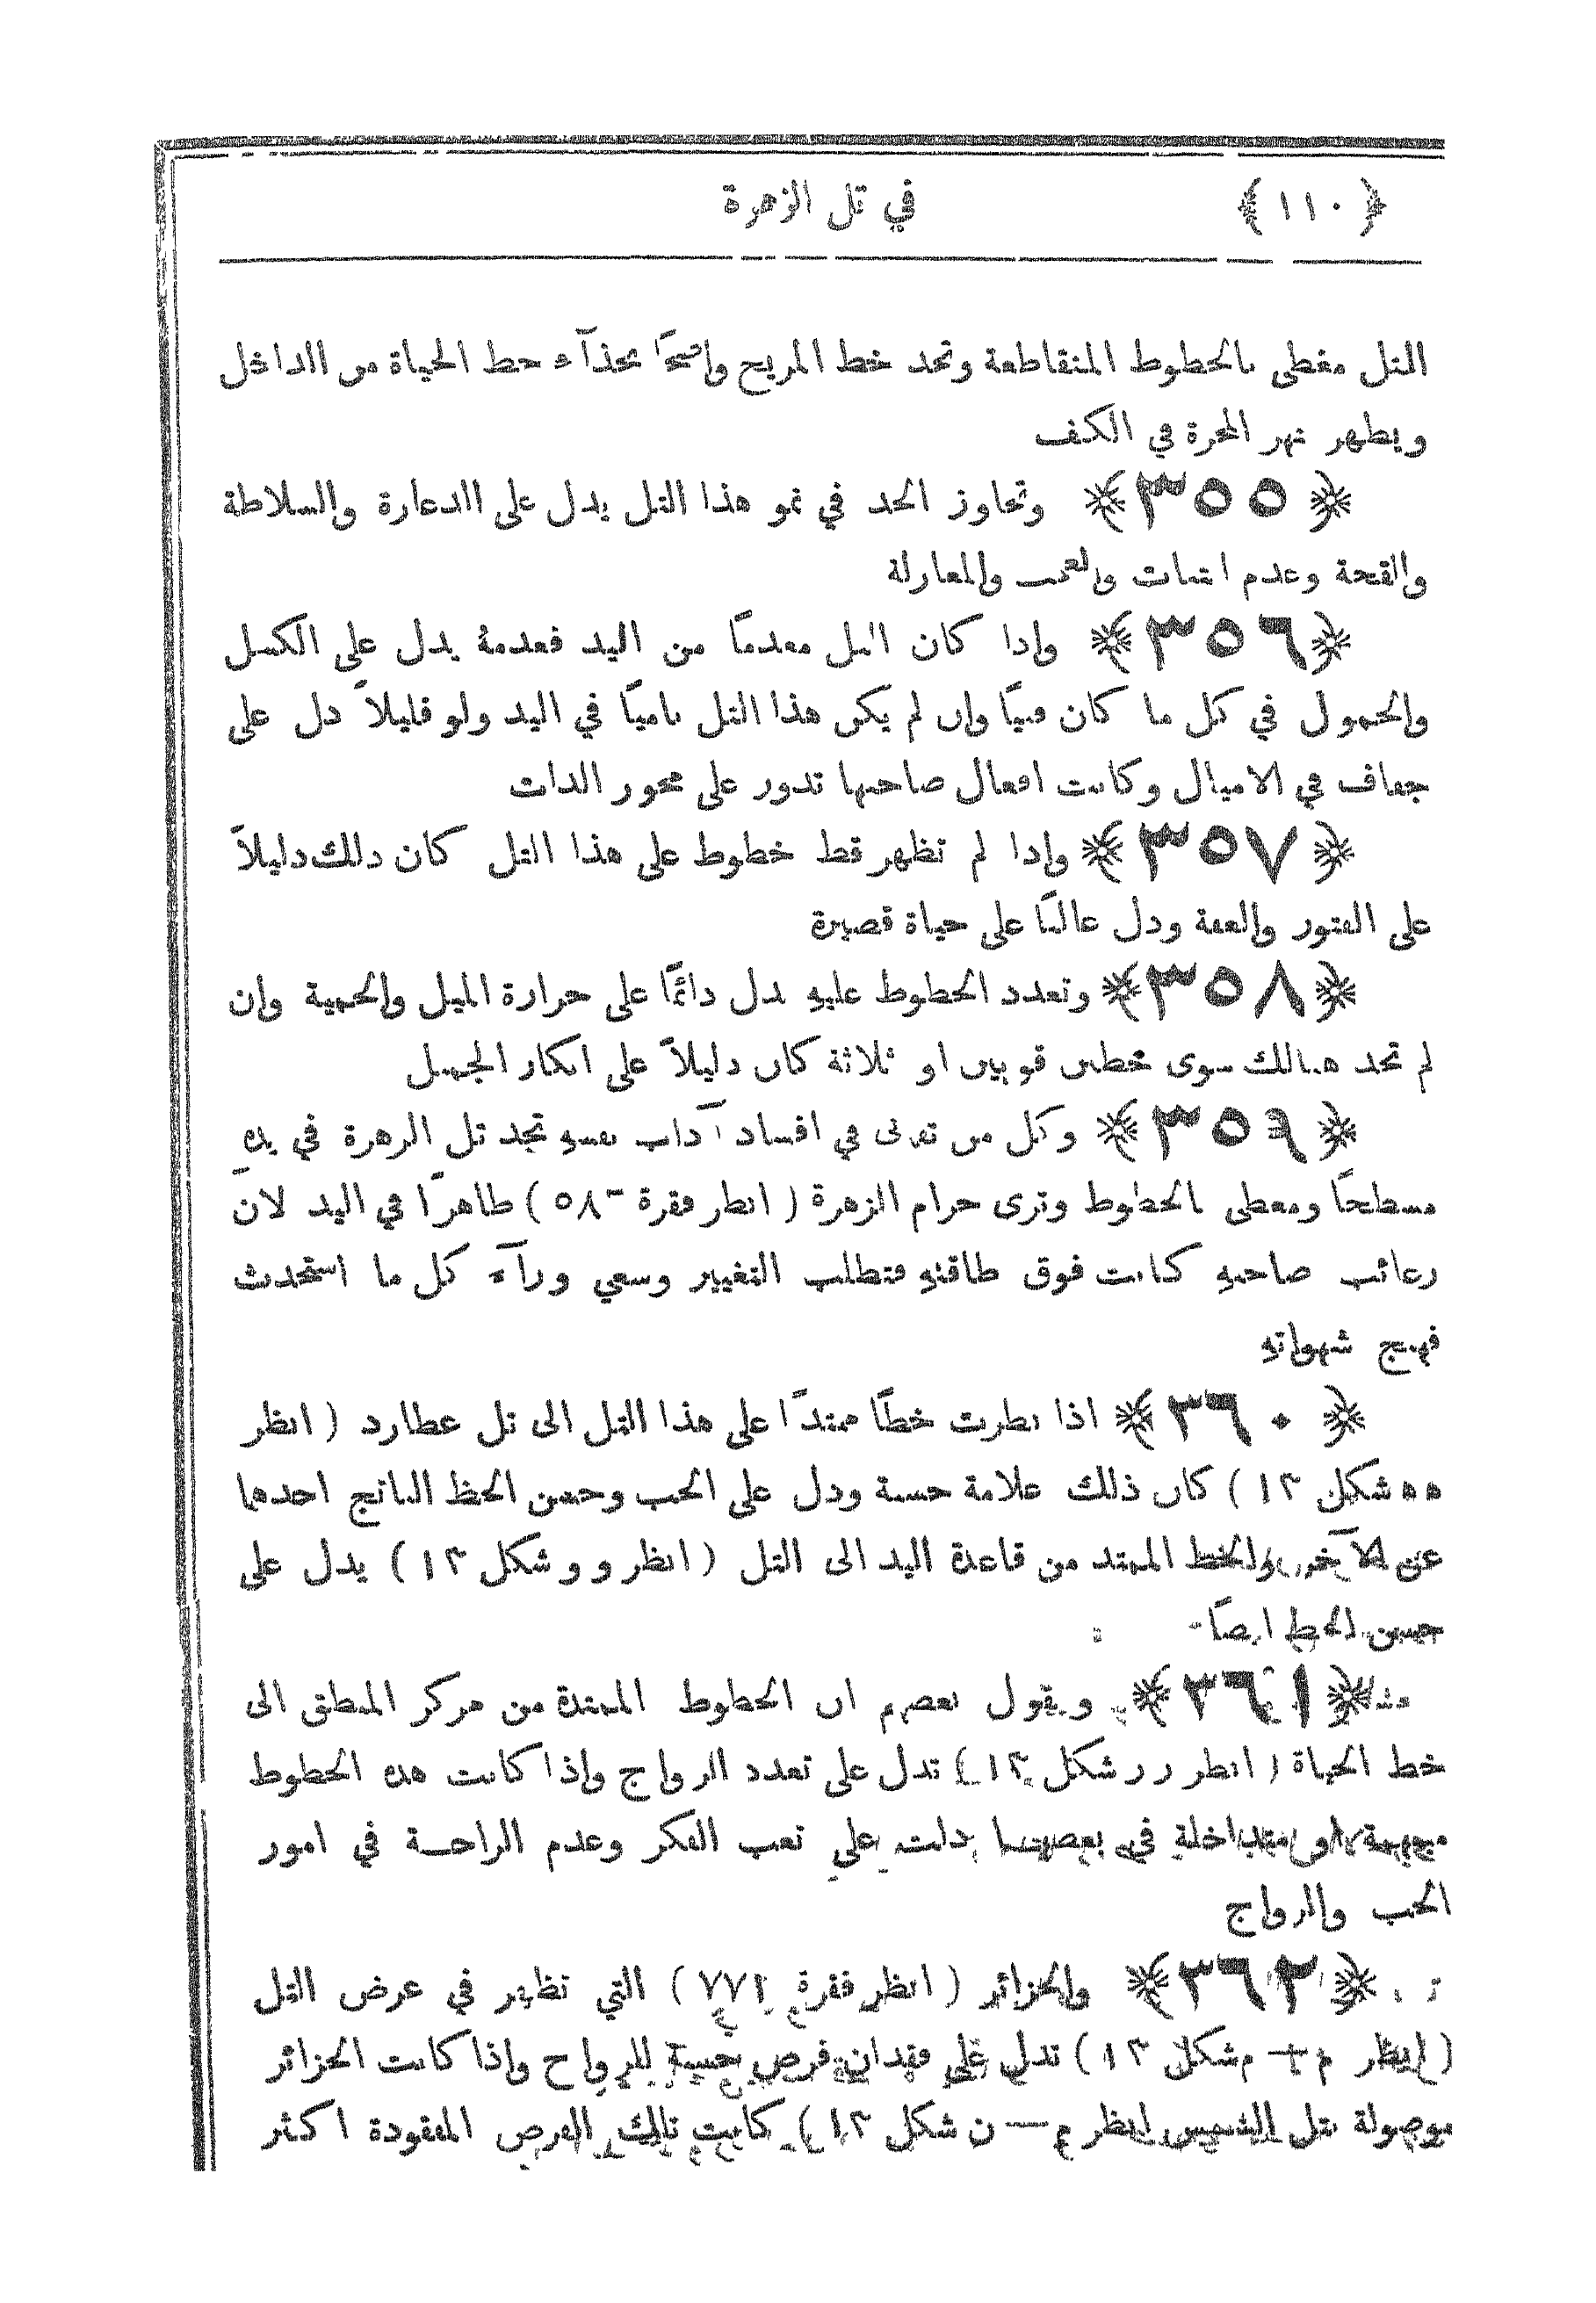 ﴿ ١١٠ ﴾ في تل الزهرة
التل مغطى بالخطوط المتقاطعة وتجد خط المريخ واضحًا بحذآء خط الحياة من الداخل
ويظهر نهر المجرة في الكف
﴿ ٣٥٥ ﴾ وتجاوز الحد في نمو هذا التل يدل على الدعارة والسلاطة
والقحة وعدم الثبات والعجب والمغازلة
﴿ ٣٥٦ ﴾ واذا كان التل معدمًا من اليد فعدمهُ يدل على الكسل
والخمول في كل ما كان فنيًا وان لم يكن هذا التل ناميًا في اليد ولو قليلاً دل على
جفاف في الاميال وكانت افعال صاحبها تدور على محور الذات
﴿ ٣٥٧ ﴾ واذا لم تظهر قط خطوط على هذا التل كان ذلك دليلاً
على الفتور والعفة ودل غالبًا على حياة قصيرة
﴿ ٣٥٨ ﴾ وتعدد الخطوط عليهِ يدل دائمًا على حرارة الميل والحمية وان
لم تجد هنالك سوى خطين قويين او ثلاثة كان دليلاً على انكار الجميل
﴿ ٣٥٩ ﴾ وكل من تفانى في افساد آداب نفسهِ تجد تل الزهرة في يدهِ
مسطحًا ومغطى بالخطوط وترى حزام الزهرة ( انظر فقرة ٥٨٠ ) ظاهرًا في اليد لان
رغائب صاحبهِ كانت فوق طاقتهِ فتطلب التغيير وسعى ورآء كل ما استحدث
فهيج شهواتهِ
﴿ ٣٦٠ ﴾ اذا نظرت خطًا ممتدًا على هذا التل الى تل عطارد ( انظر
ه ه شكل ١٢ ) كان ذلك علامة حسنة ودل على الحب وحسن الحظ الناتج احدهما
عن الآخر والخط الممتد من قاعدة اليد الى التل ( انظر و و شكل ١٢ ) يدل على
حسن الحظ ايضًا
﴿ ٣٦١ ﴾ ويقول بعضهم ان الخطوط الممتدة من مركز المنطق الى
خط الحياة ( انظر ر ر شكل ١٢ ) تدل على تعدد الزواج واذا كانت هذه الخطوط
او متداخلة في بعضها دلت على تعب الفكر وعدم الراحة في امور
الحب والزواج
﴿ ٣٦٢ ﴾ والجزائر ( انظر فقرة ٧٧١ ) التي تظهر في عرض التل
( انظر م + م شكل ١٢ ) تدل على فقدان فرص حسنة للزواج واذا كانت الجزائر
موصولة بتل الشمس انظر م — ن شكل ١٢ ) كانت تلك الفرص المفقودة اكثر